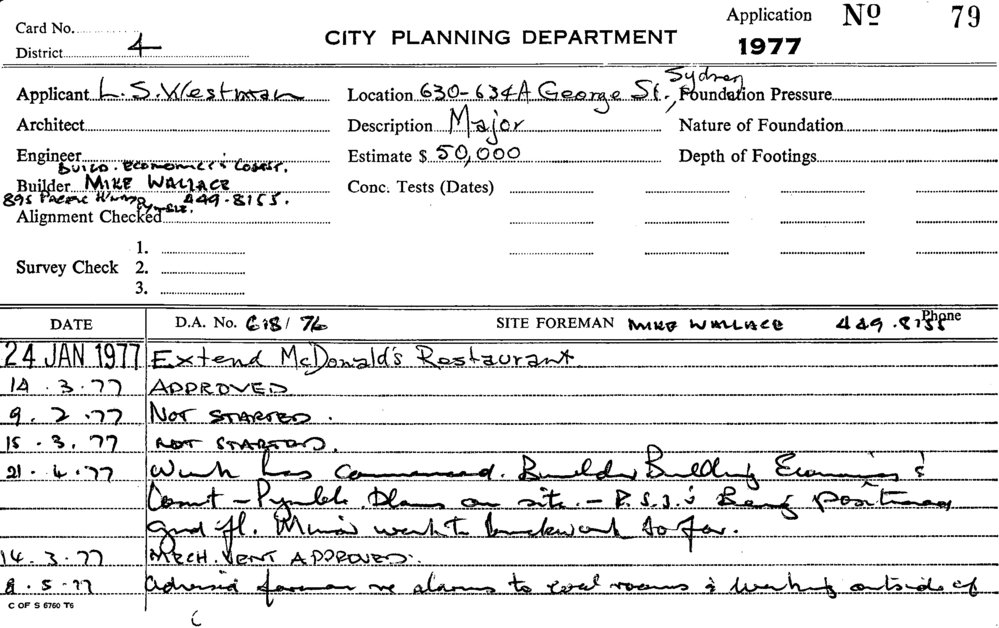 Card No.
Application No 79
District 4
CITY PLANNING DEPARTMENT
1977
Applicant L.S. Westman
Location 630-634A George St., Sydney
Foundation Pressure
Architect
Description Major
Nature of Foundation
Engineer
Estimate $ 50,000
Depth of Footings
BUILD. ECONOMICS & CONST.
Builder MIKE WALLACE
Conc. Tests (Dates)
895 PACIFIC H'WAY PYMBLE. 449.8155.
Alignment Checked
1.
Survey Check 2.
3.
DATE D.A. No. 618/76 SITE FOREMAN MIKE WALLACE 449.8155 Phone
24 JAN 1977 Extend McDonald's Restaurant
14.3.77 APPROVED
9.2.77 NOT STARTED.
15.3.77 NOT STARTED.
21.4.77 Work has commenced. Builder Building Economics &
Const - Pymble. Plans on site. - R.S.J.'s Being positioned
Gnd fl. Minor work to brickwork so far.
14.3.77 MECH. VENT APPROVED.
8.5.77 Advised foreman re alarms to cool rooms & working outside of
C OF S 6760 T6